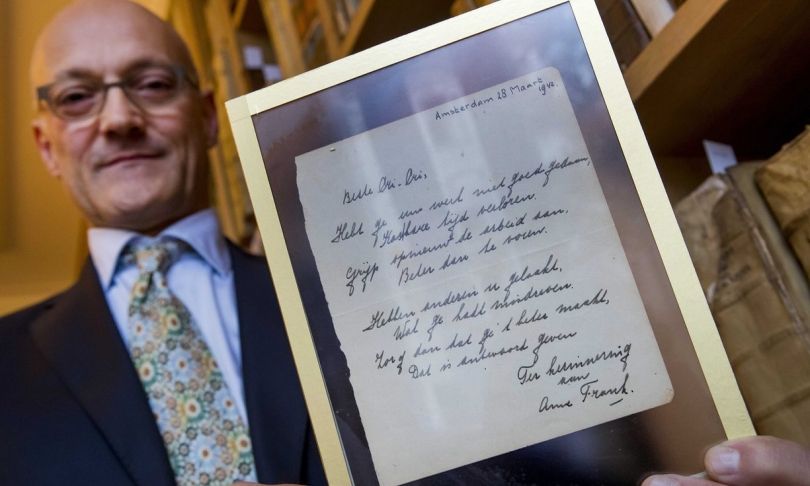 Amsterdam 28 Maart
1942.
Beste Cri-Cri,
Hebt ge uw werk niet goed gedaan,
Kostbare tijd verloren.
Grijp opnieuw de arbeid aan,
Beter dan te voren.
Hebben anderen u gelaakt,
Wat ge hadt misdreven.
Zorg dan dat ge 't beter maakt,
Dat is antwoord geven
Ter herinnering
van
Anne Frank.